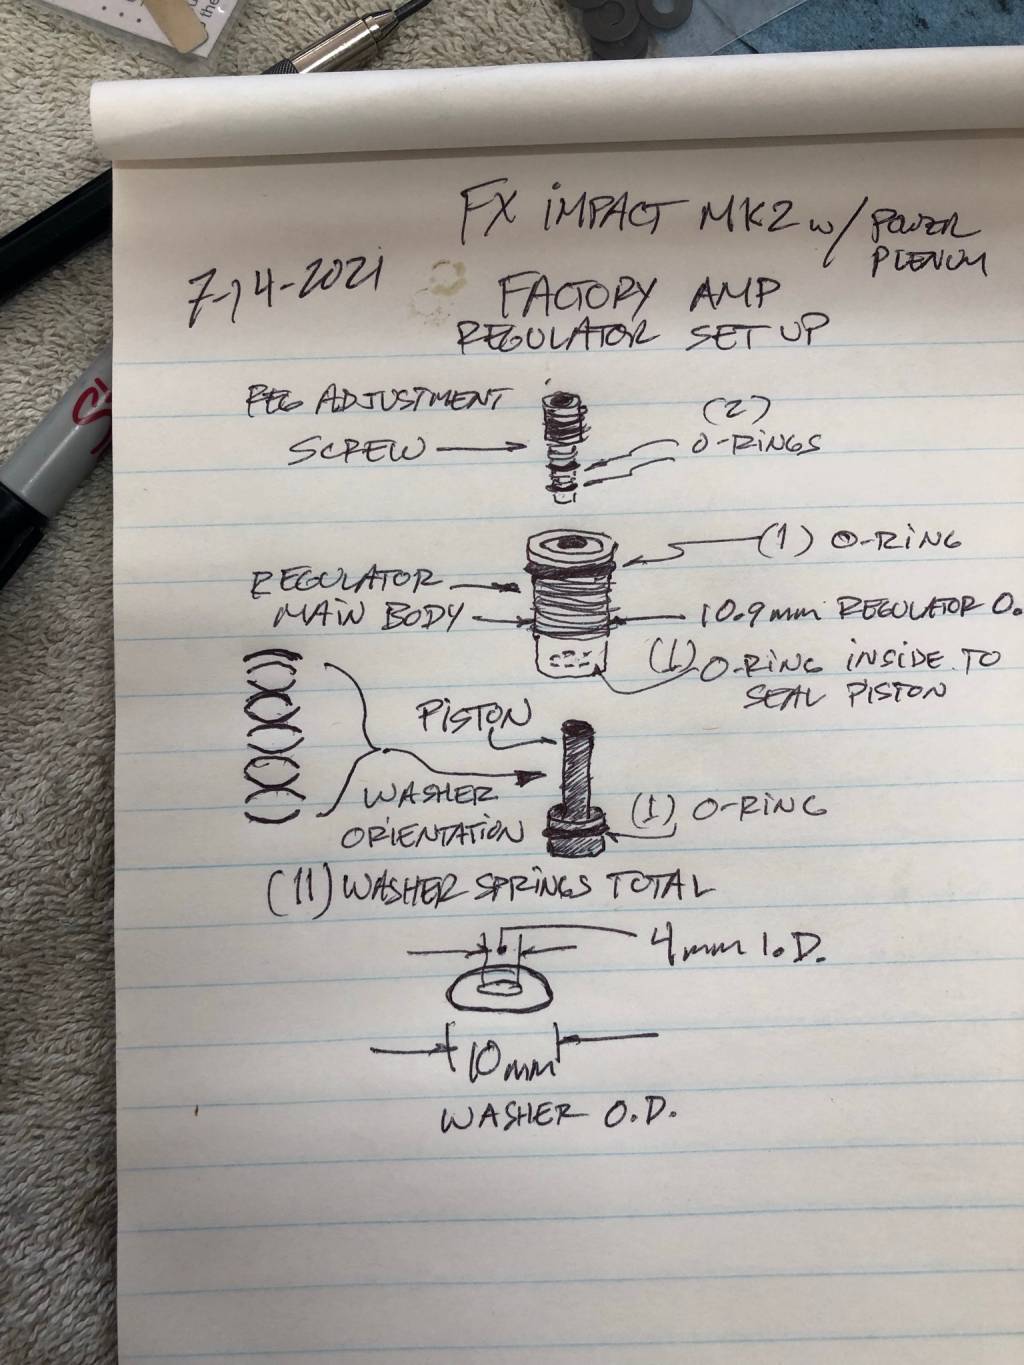 FX IMPACT MK2 w/ POWER PLENUM
7-14-2021
FACTORY AMP
REGULATOR SET UP
REG ADJUSTMENT
SCREW
(2)
O-RINGS
(1) O-RING
REGULATOR
MAIN BODY
10.9mm REGULATOR O.
(1) O-RING INSIDE TO
SEAL PISTON
PISTON
WASHER
ORIENTATION
(1) O-RING
(11) WASHER SPRINGS TOTAL
4mm I.D.
10mm
WASHER O.D.